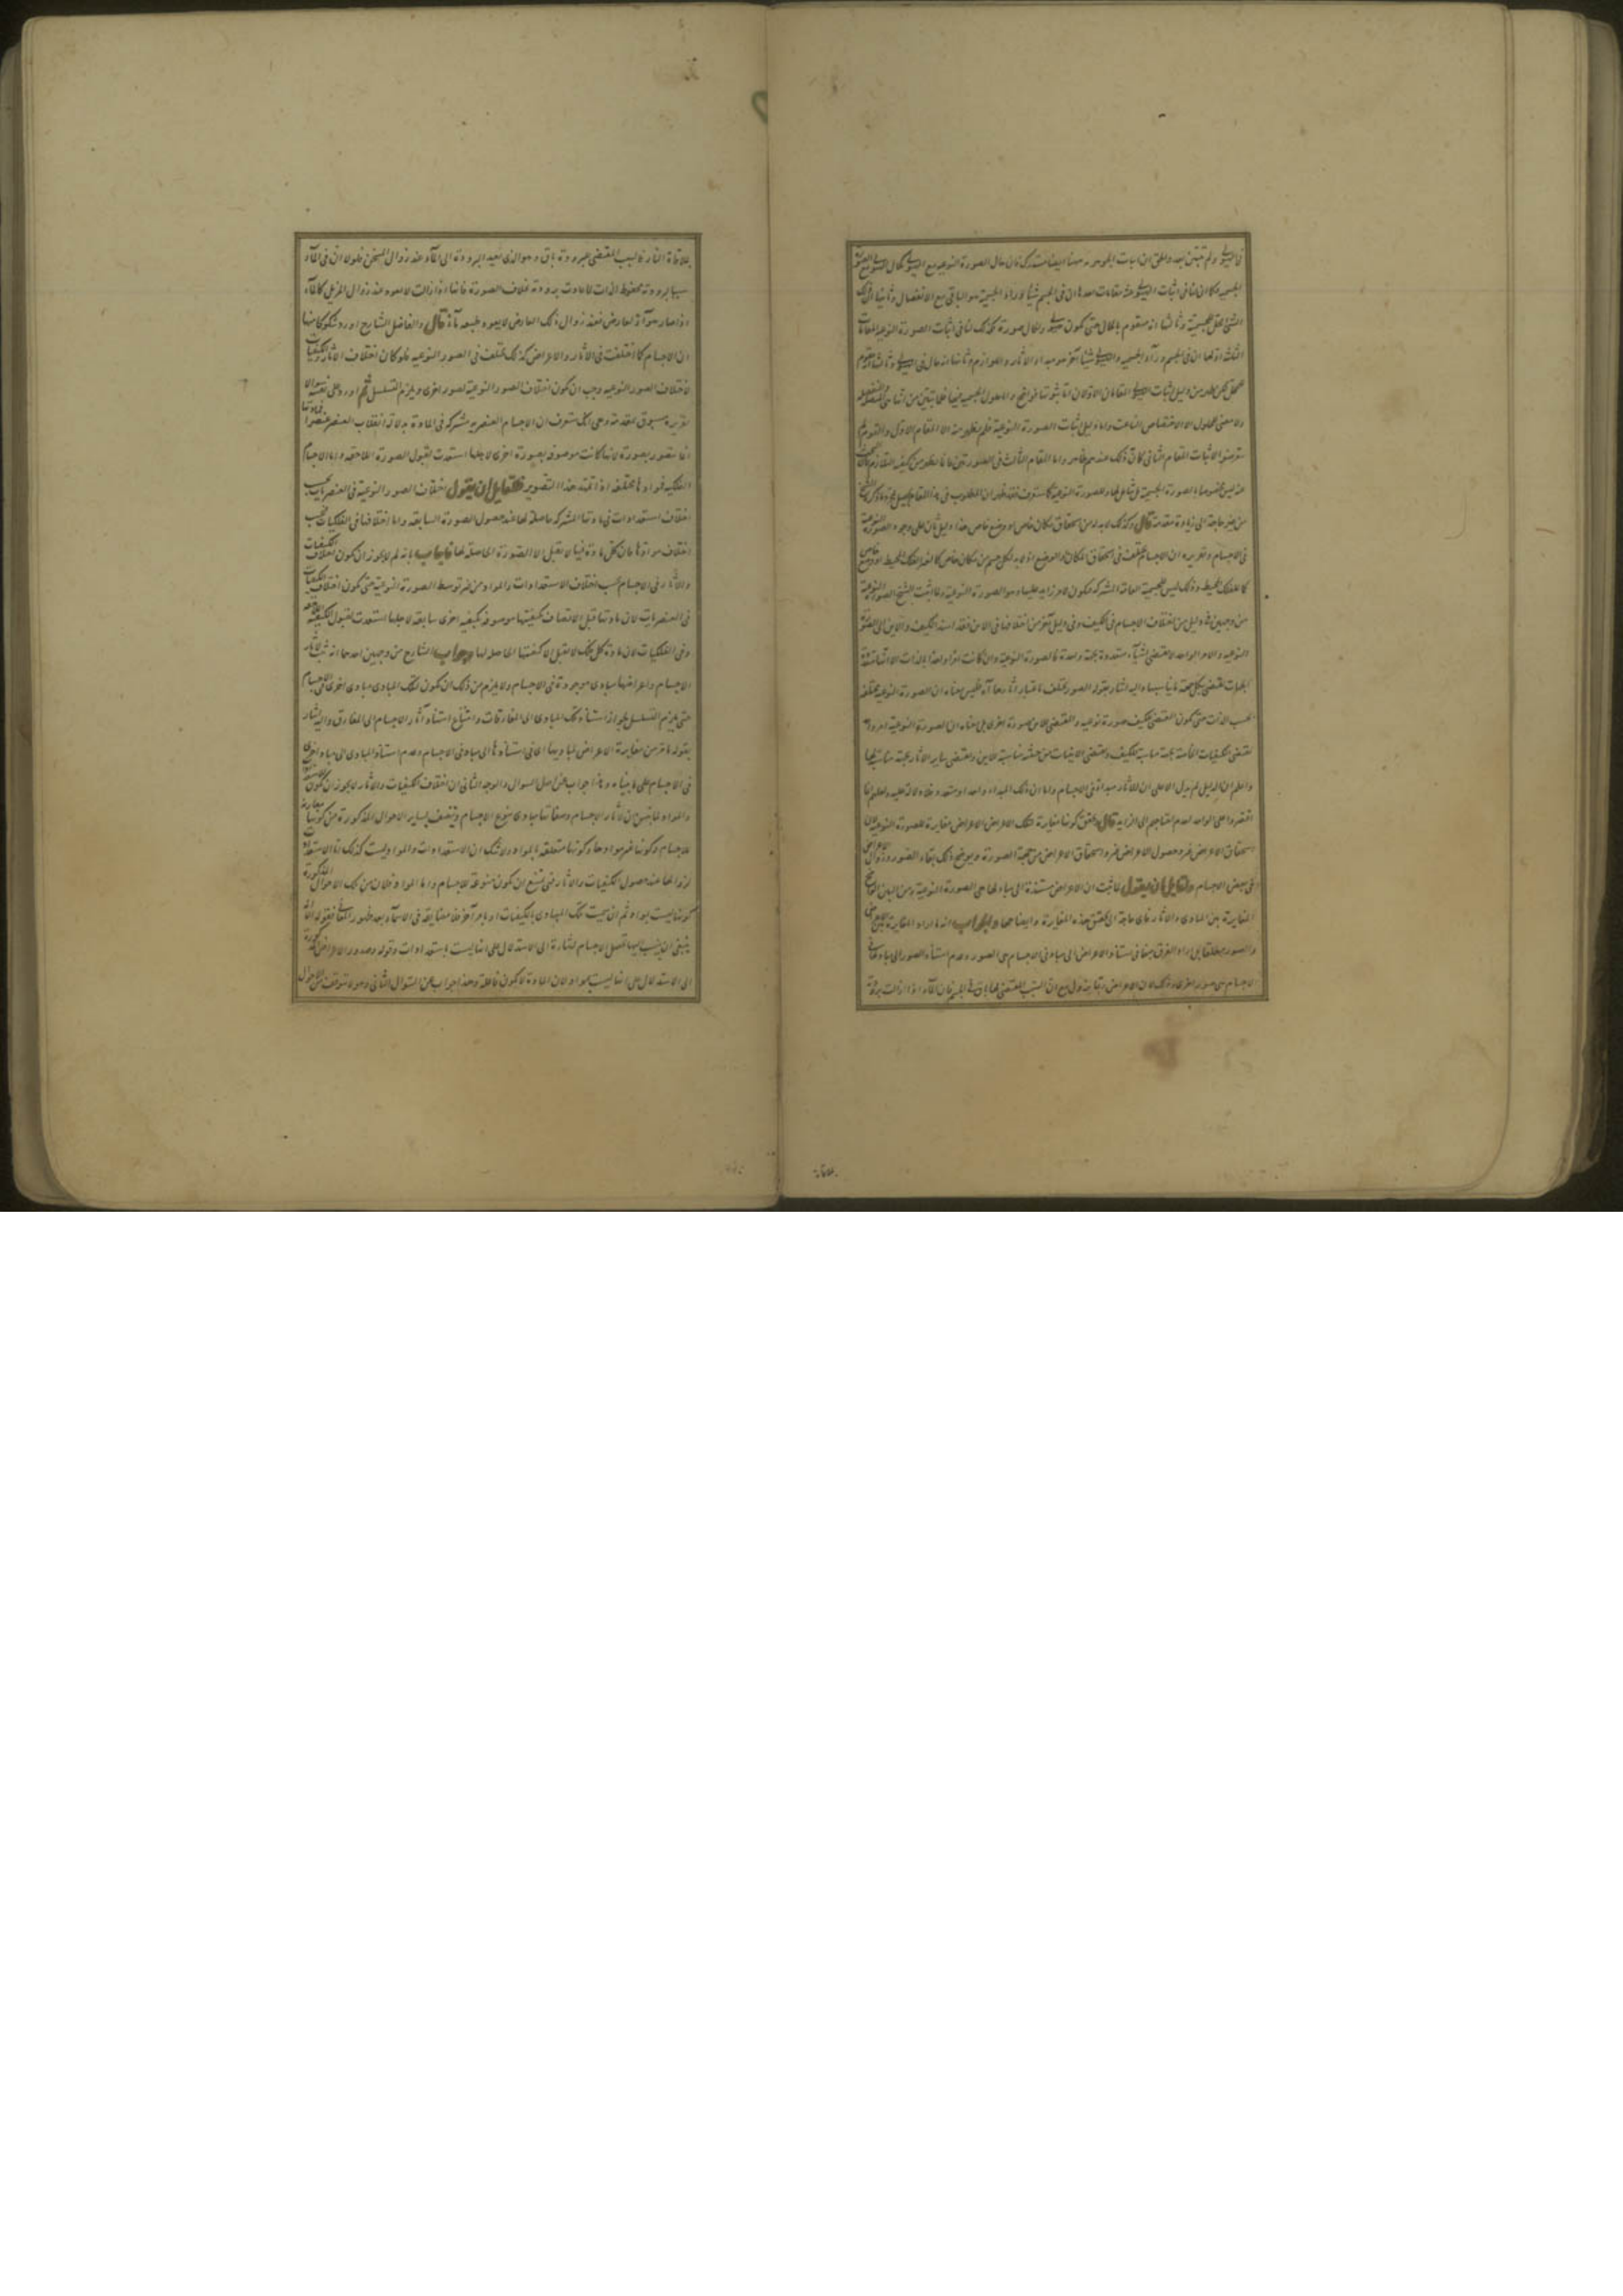 في الهيولى ولم يتبين بعد والحق ان اثبات الجوهرية ههنا ايضا مستدرك فان حال الصورة النوعية مع الهيولى كحال
الجسمية فكما ان لنا في اثبات الهيولى ثلثة مقامات احدها ان في الجسم شيئا وراء الجسمية هو الباقي مع الانفصال وثانيها ان ذلك
الشئ محل للجسمية وثالثها انه متقوم بالحال حتى يكون هيولى والحال صورة كذلك لنا في اثبات الصورة النوعية المقامات
الثلثة اولها ان في الجسم وراء الجسمية والهيولى شيئا آخر هو مبدء الآثار واللوازم وثانيها انه حال في الهيولى وثالثها انه مقوم
للمحل لكن ظهر من دليل اثبات الهيولى المقامان الاولان
ولا معنى للحلول الا الاختصاص الناعت واما دليل اثبات الصورة النوعية فلم يظهر منه الا المقام الاول والقوم لم
يتعرضوا لاثبات المقام الثاني لان ذلك عندهم ظاهر واما المقام الثالث في الصورتين فانما يظهر من كيفية التلازم
عنه ليس مخصوصا بالصورة الجسمية بل شامل لها وللصورة النوعية كما ستعرف فقد ظهر ان المطلوب في هذا المقام
من غير حاجة الى زيادة مقدمة قال وكذلك لا بد من استحقاق مكان خاص او وضع خاص هذا دليل ثان على وجود الصورة النوعية
في الاجسام وتقريره ان الاجسام تختلف في استحقاق المكان والوضع اذ لا بد لكل جسم من مكان خاص كما لغير الفلك المحيط او وضع خاص
كما للفلك المحيط وذلك ليس للجسمية العامة المشتركة فيكون لامر زايد عليها وهو الصورة النوعية وانما اثبت الشيخ الصور النوعية
من وجهين في دليل من اختلاف الاجسام في الكيف وفي دليل آخر من اختلافها في الاين فقد اسند الكيف والاين الى الصورة
النوعية والامر الواحد لا يقتضي اشياء متعددة بجهة واحدة فالصورة النوعية وان كانت امرا واحدا بالذات الا انها متعددة
الجهات تقتضي بكل جهة ما يناسبها واليه اشار بقوله الصور تختلف باعتبار آثارها اذ ليس معناه ان الصورة النوعية مختلفة
بحسب الذات حتى يكون المقتضي للكيف صورة نوعية والمقتضي للاين صورة اخرى بل معناه ان الصورة النوعية امر واحد
تقتضي الكيفيات الخاصة بجهة مناسبة للكيف وتقتضي الاينيات من حيث مناسبة للاين وتقتضي ساير الآثار بجهة مناسبة لها
واعلم ان الدليل لم يدل الا على ان للآثار مبدأ في الاجسام واما ان ذلك المبداء واحد او متعدد فلا دلالة عليه ولعلهم انما
اقتصروا على الواحد لعدم احتياجهم الى الزايد قال وتحقق كونها مغايرة لتلك الاعراض الاعراض مغايرة للصورة النوعية لان
استحقاق الاعراض غير وحصول الاعراض غير واستحقاق الاعراض من جهة الصورة ويوضح ذلك بقاء الصور وزوال الاعراض
في بعض الاجسام ولقايل ان يقول لما ثبت ان الاعراض مستندة الى مباد لها هي الصورة النوعية ومن البين الواضح
المغايرة بين المبادى والآثار فاى حاجة الى تحقيق هذه المغايرة وايضاحها والجواب انه ما اراد المغايرة بين الاعراض
والصور مطلقا بل اراد الفرق بينهما في استناد الاعراض الى مباد في الاجسام هى الصور وعدم استناد الصور الى مباد في
الاجسام هى صور اخرى وذلك لان الاعراض ربما تزول مع ان السبب المقتضي لها باق في الجسم فان الماء اذا زالت برودته
بملاقاة
بملاقاة النار فالسبب المقتضي للبرودة باق وهو الذى يعيد البرودة الى الماء عند زوال المسخن فلولا ان في الماء
سببا لبرودته محفوظ الذات لما عادت برودته بخلاف الصورة فانها اذا زالت لا تعود عند زوال المزيل كالماء
اذا صار هواء لعارض فعند زوال ذلك العارض لا يعود بطبعه ماء قال والفاضل الشارح اورد شكوكا منها
ان الاجسام كما اختلفت في الآثار والاعراض كذلك تختلف في الصور النوعية فلو كان اختلاف الآثار والكيفيات
لاختلاف الصور النوعية وجب ان يكون اختلاف الصور النوعية لصور اخرى ويلزم التسلسل ثم اورد على نفسه سؤالا
تقريره مسبوق بمقدمة وهى انك ستعرف ان الاجسام العنصرية مشتركة في المادة بدلالة انقلاب العنصر عنصرا
انما تتصور بصورة لانها كانت موصوفة بصورة اخرى لاجلها استعدت لقبول الصورة اللاحقة واما الاجسام
الفلكية فموادها مختلفة اذا تمهد هذا التصوير فلقايل ان يقول اختلاف الصور النوعية في العنصريات بحسب
اختلاف استعدادات في مادتها المشتركة حاصلة لها عند حصول الصورة السابقة واما اختلافها في الفلكيات فبحسب
اختلاف موادها فان كل مادة فيها لا تقبل الا الصورة الحاصلة لها فاجاب بانه لم لا يجوز ان يكون اختلاف الكيفيات
والآثار في الاجسام بحسب اختلاف الاستعدادات والمواد من غير توسط الصورة النوعية حتى يكون اختلاف الكيفيات
في العنصريات لان مادتها قبل الاتصاف بكيفيتها موصوفة بكيفية اخرى سابقة لاجلها استعدت لقبول الكيفية اللاحقة
وفي الفلكيات لان مادة كل فلك لا تقبل الا كيفيتها الحاصلة لها وجواب الشارح من وجهين احدهما انه ثبت لآثار
الاجسام واعراضها مبادى موجودة في الاجسام ولا يلزم من ذلك ان يكون لتلك المبادى مبادى اخرى في الاجسام
حتى يلزم التسلسل لجواز استناد تلك المبادى الى المفارقات وامتناع استناد آثار الاجسام الى المفارق واليه اشار
بقوله ما مر من مغايرة الاعراض لمباديها اى في استنادها الى مباد في الاجسام وعدم استناد المبادى الى مباد اخرى
في الاجسام على ما بيناه وهذا جواب عن اصل السؤال والوجه الثاني ان اختلاف الكيفيات والآثار لا يجوز ان يكون
والمواد لما تبين ان لآثار الاجسام وصفاتها مبادى تنوع الاجسام وتتصف بساير الاحوال المذكورة من كونها مغايرة
للاجسام وكونها غير مواد لها وكونها متعلقة بالمواد ولا شك ان الاستعدادات والمواد ليست كذلك اما الاستعدادات
لزوالها عند حصول الكيفيات والآثار فيمتنع ان تكون منوعة للاجسام واما المواد فلان من تلك الاحوال المذكورة
كونها ليست بمواد ثم ان سميت تلك المبادى بالكيفيات او بامر آخر فلا مضايقة في الاسماء بعد ظهور المعانى فقوله
ينبغى ان ينسب اليها تحصل الاجسام اشارة الى الاستدلال على انها ليست باستعدادات وقوله وصدور الاعراض المذكورة
الى الاستدلال على انها ليست بمواد لان المادة لا تكون فاعلة وهذا جواب عن السؤال الثاني وهو لا يتوقف على